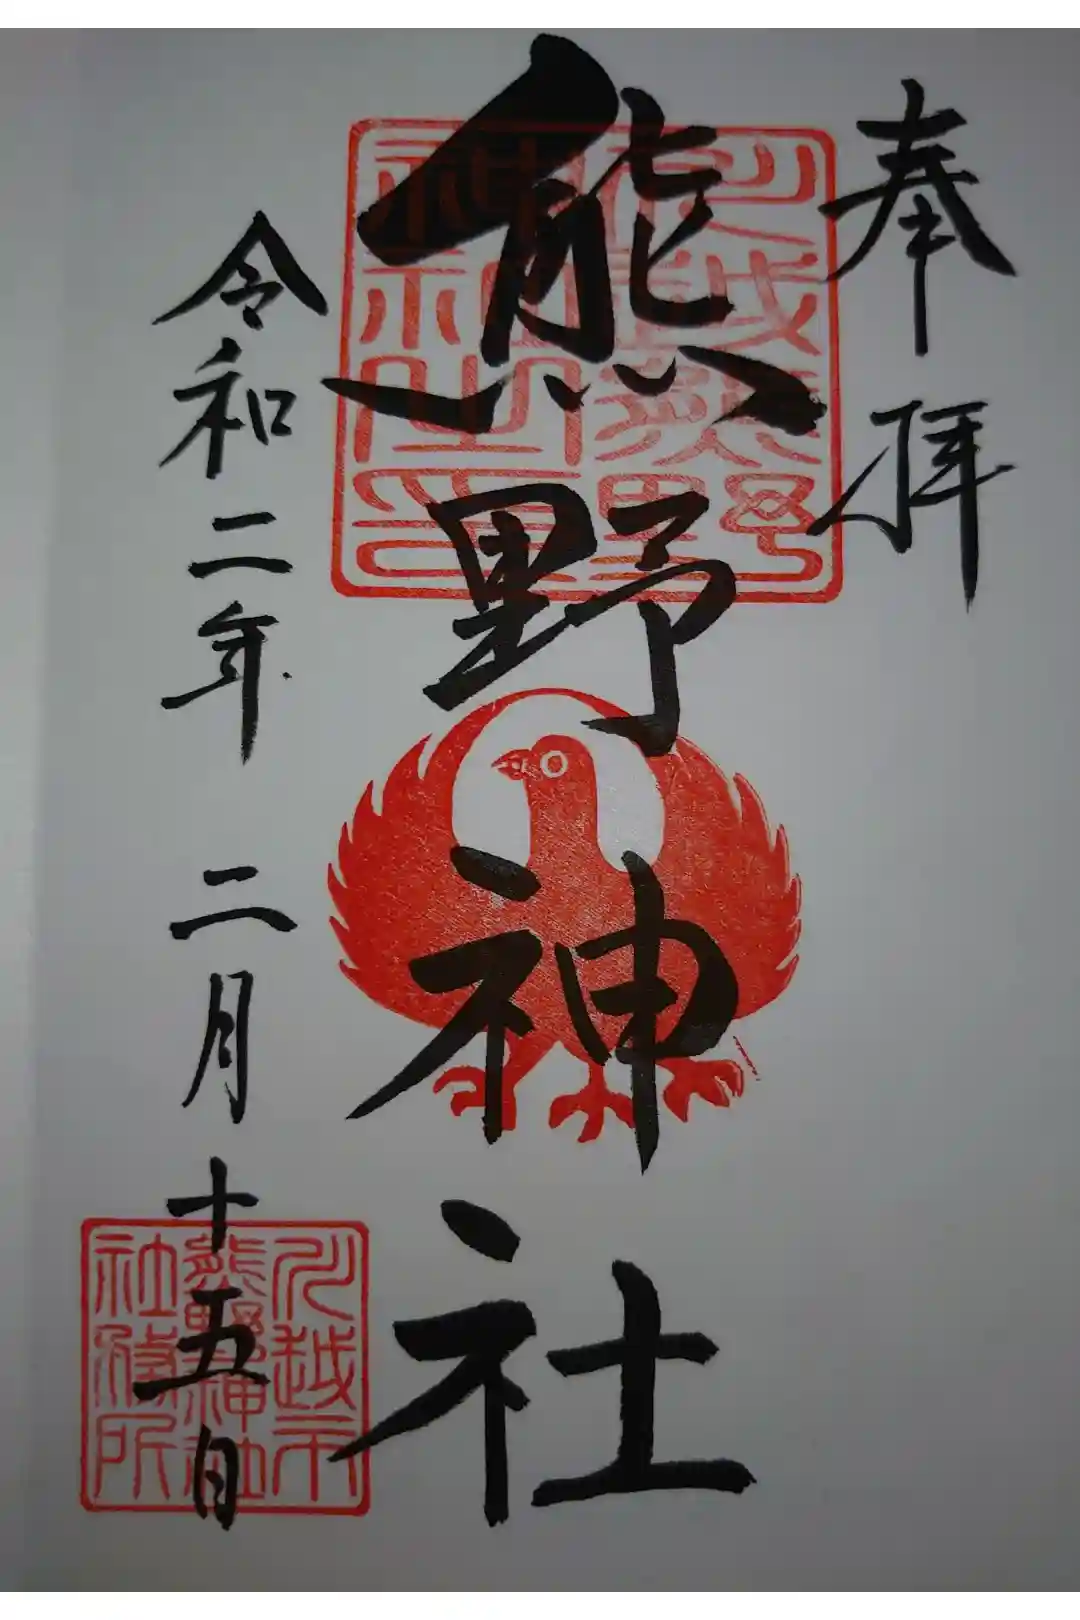 奉拝
熊野神社
令和二年 二月十五日
川越市
熊野神社
社務所